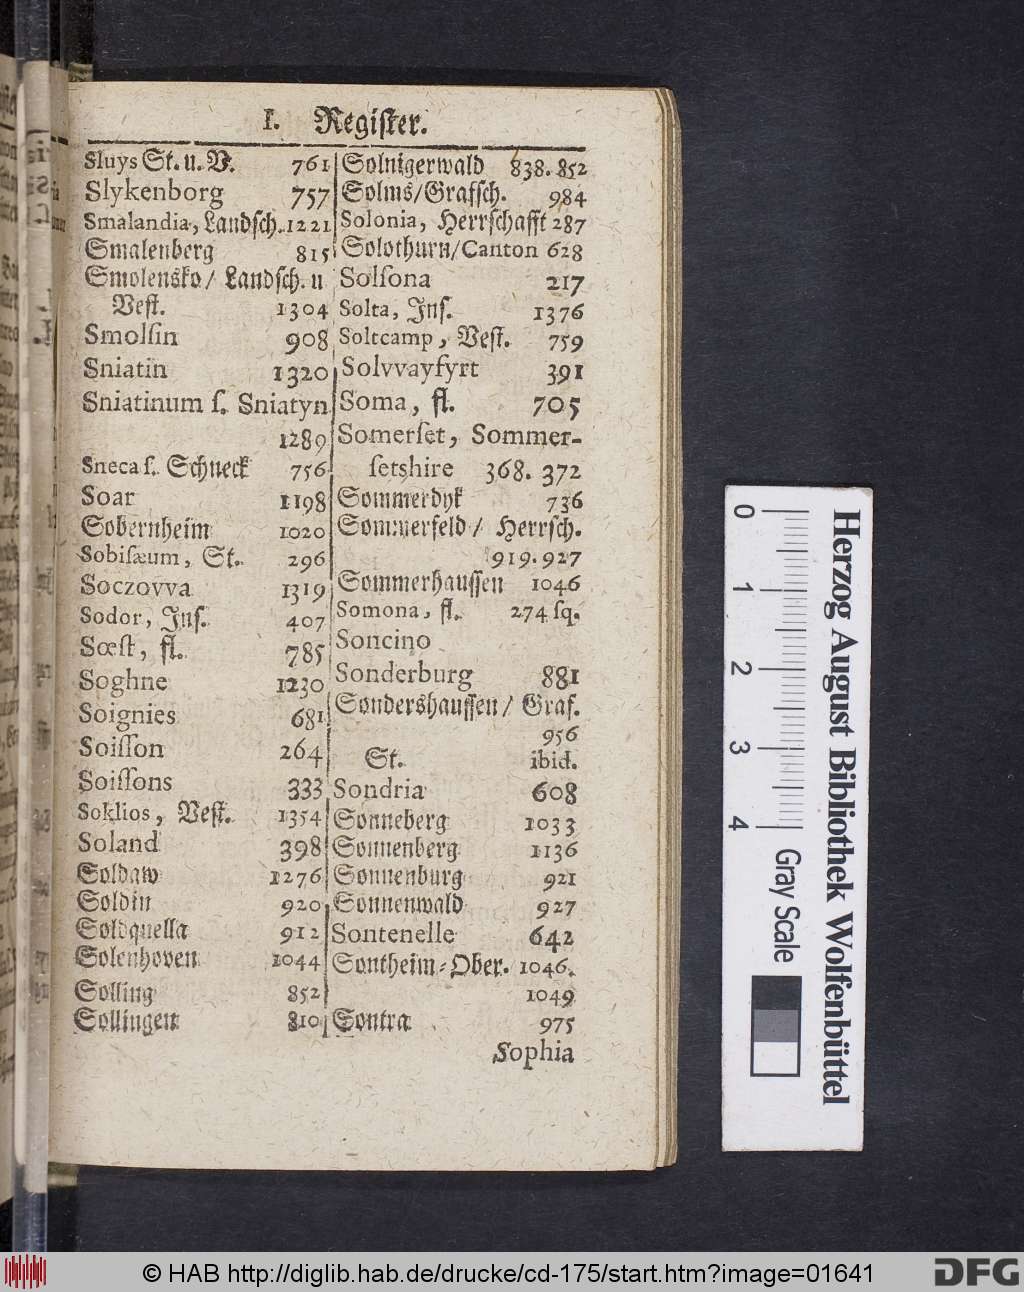 I. Register.
Sluys St. u. V. 761
Slykenborg 757
Smalandia, Landsch. 1221
Smalenberg 815
Smolensko / Landsch. u
Vest. 1304
Smolſin 908
Sniatin 1320
Sniatinum ſ. Sniatyn
1289
Sneca ſ. Schneck 756
Soar 1198
Sobernheim 1020
Sobiſæum, St. 296
Soczovva 1319
Sodor, Inſ. 407
Sœſt, fl. 785
Soghne 1230
Soignies 681
Soiſſon 264
Soiſſons 333
Soklios, Veſt. 1354
Soland 398
Soldaw 1276
Soldin 920
Soldquella 912
Solenhoven 1044
Solling 852
Sollingen 810
Solnigerwald 838. 852
Solms/Grafſch. 984
Solonia, Herrſchafft 287
Solothurn/Canton 628
Solſona 217
Solta, Inſ. 1376
Soltcamp, Veſt. 759
Solvvayfyrt 391
Soma, fl. 705
Somerſet, Sommer-
ſetshire 368. 372
Sommerdyk 736
Sommerfeld / Herrſch.
919. 927
Sommerhauſſen 1046
Somona, fl. 274 ſq.
Soncino
Sonderburg 881
Sondershauſſen / Graf.
956
St. ibid.
Sondria 608
Sonneberg 1033
Sonnenberg 1136
Sonnenburg 921
Sonnenwald 927
Sontenelle 642
Sontheim-Ober. 1046.
1049
Sontra 975
Sophia
0 1 2 3 4
Gray Scale
Herzog August Bibliothek Wolfenbüttel
© HAB http://diglib.hab.de/drucke/cd-175/start.htm?image=01641
DFG